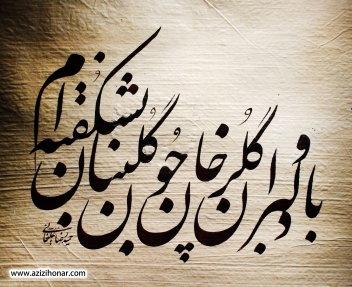 با دلبران و گلرخان چون گلبنان بشکفته ام
www.azizihonar.com